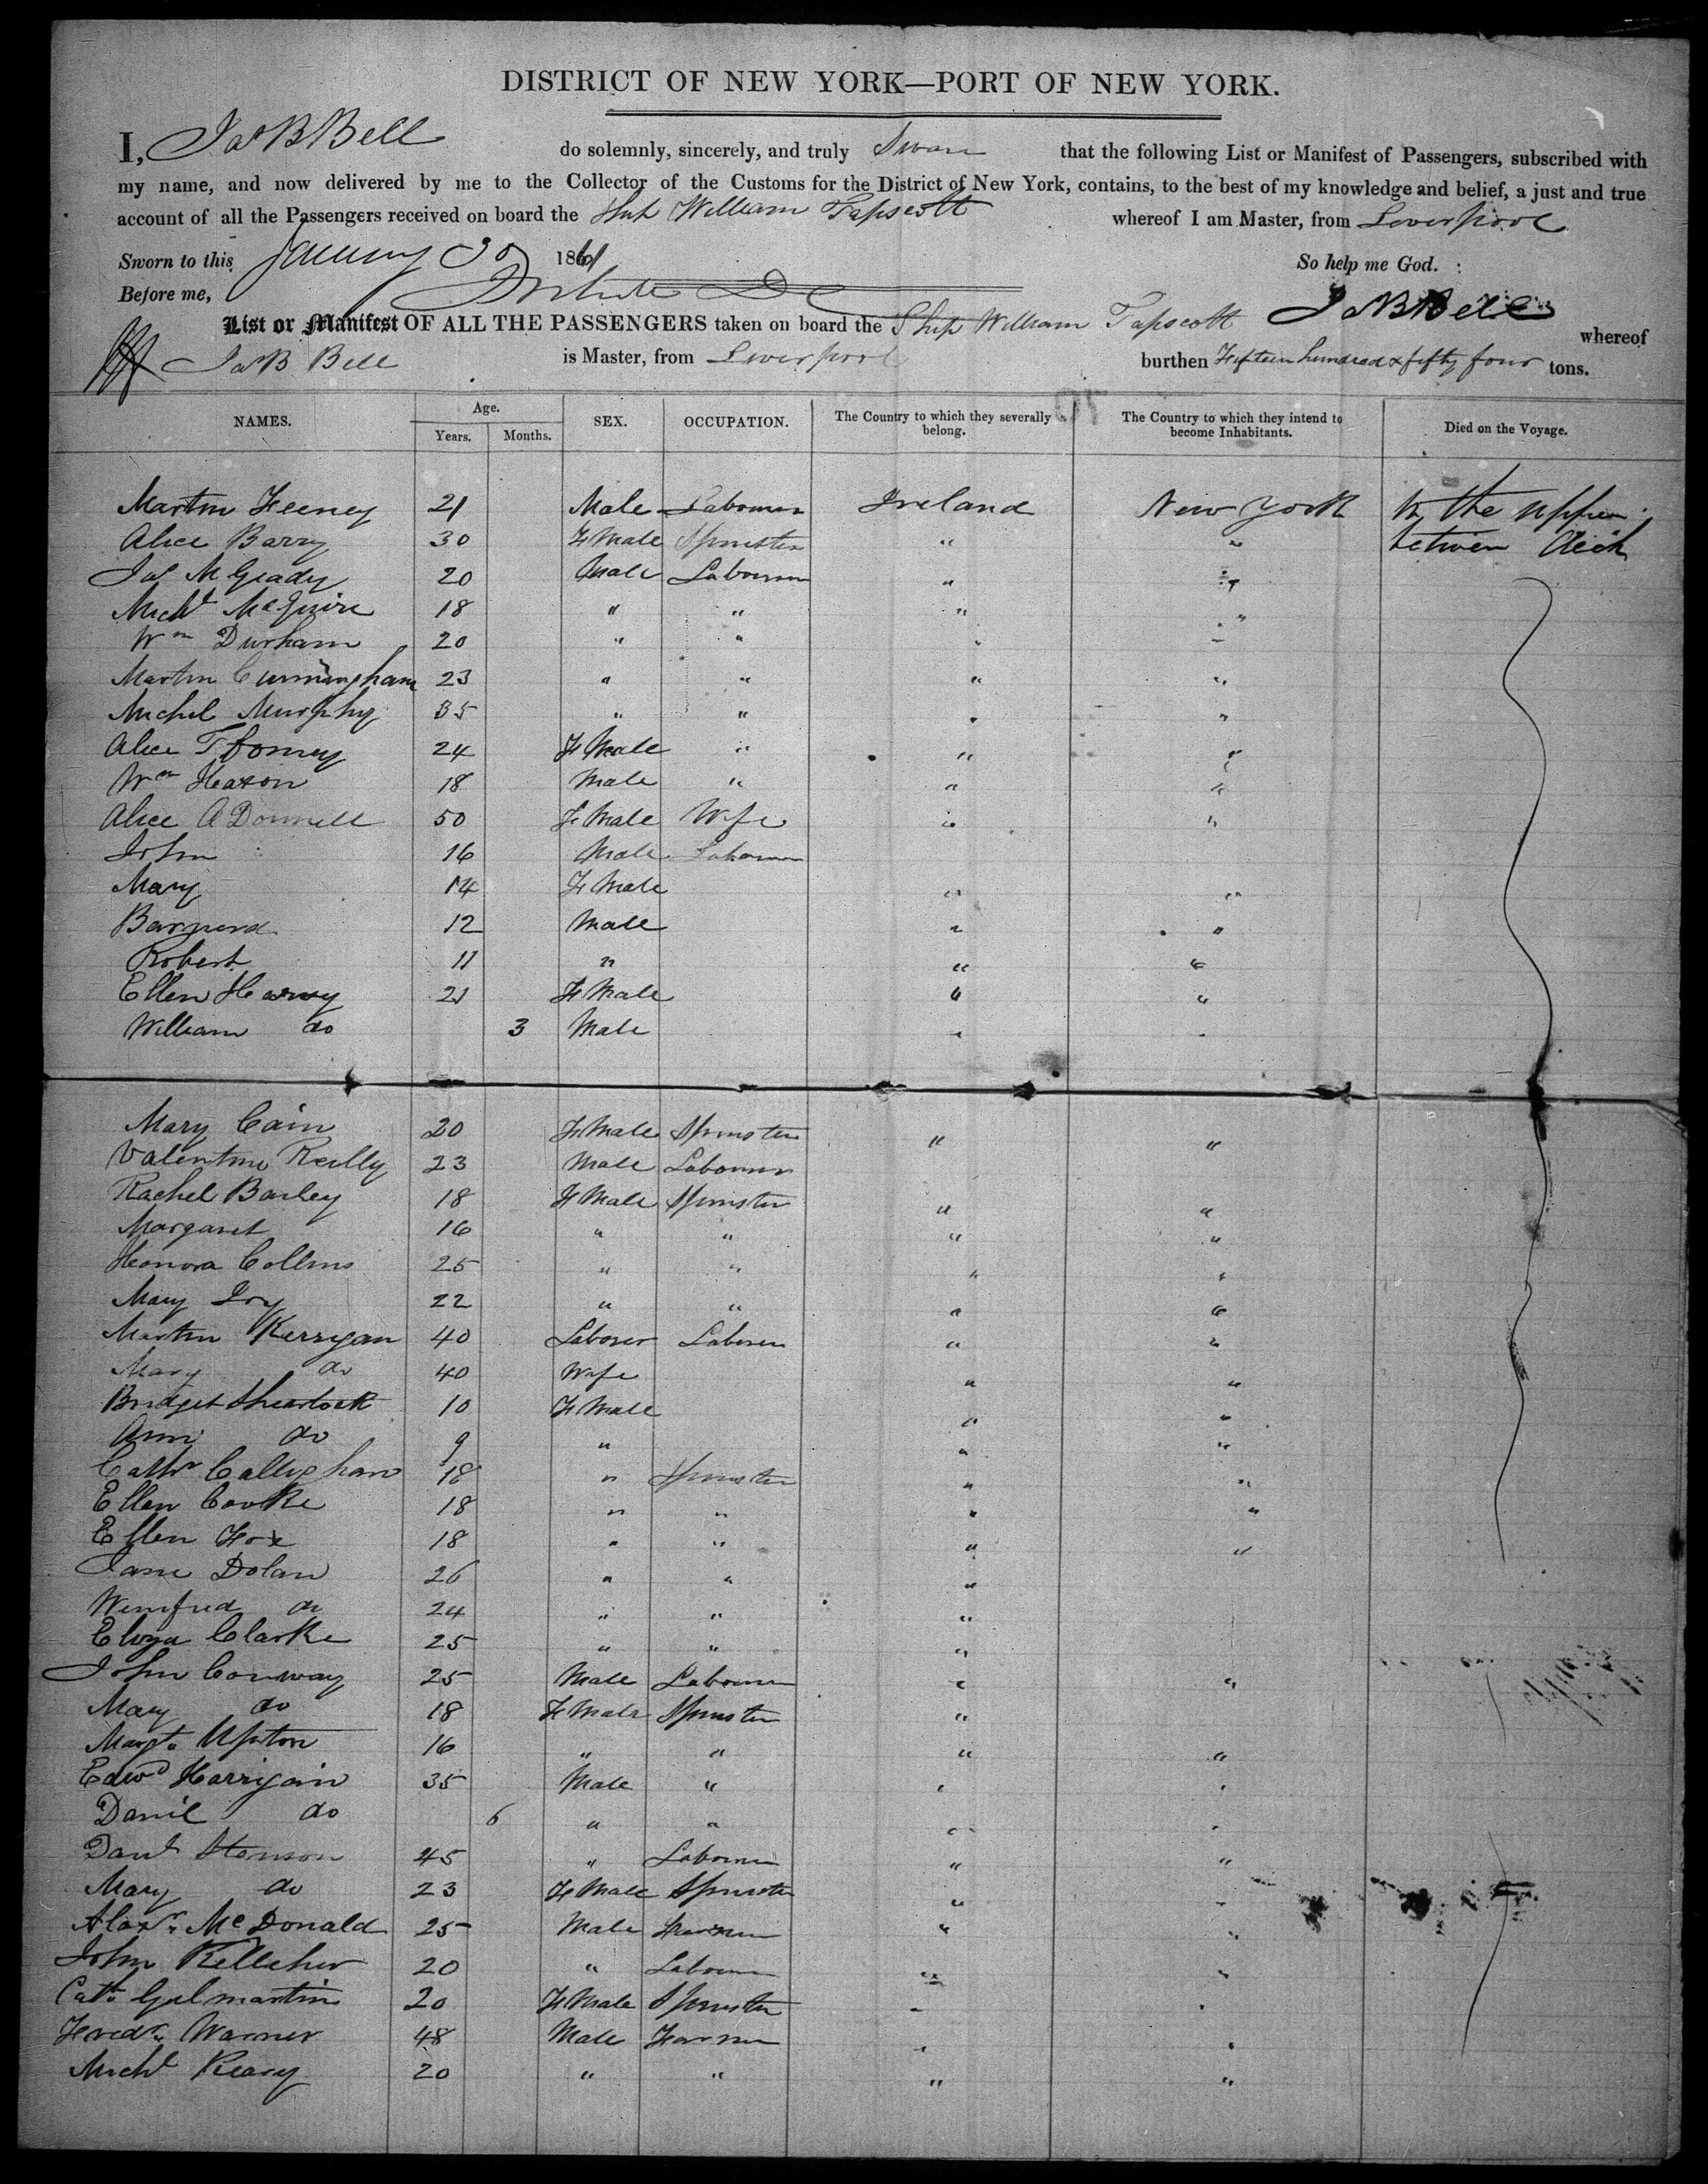 DISTRICT OF NEW YORK—PORT OF NEW YORK.
I, Jas B Bell do solemnly, sincerely, and truly Swear that the following List or Manifest of Passengers, subscribed with
my name, and now delivered by me to the Collector of the Customs for the District of New York, contains, to the best of my knowledge and belief, a just and true
account of all the Passengers received on board the Ship William Tapscott whereof I am Master, from Liverpool
Sworn to this January 30 1861 So help me God.
Before me, Jas B Bell
List or Manifest OF ALL THE PASSENGERS taken on board the Ship William Tapscott whereof
Jas B Bell is Master, from Liverpool burthen Fifteen hundred & fifty four tons.
NAMES. Age. Years. Months. SEX. OCCUPATION. The Country to which they severally belong. The Country to which they intend to become Inhabitants. Died on the Voyage.
Martin Feeney 21 Male Labourer Ireland New York In the upper
Alice Barry 30 F Male Spinster " " between deck
Jas McGrady 20 Male Labourer " "
Michl McGuire 18 " " " "
Wm Durham 20 " " " "
Martin Cunningham 23 " " " "
Michel Murphy 35 " " " "
Alice 24 F Male " " "
Wm Heaton 18 Male " " "
Alice ODonnell 50 F Male Wife " "
John 16 Male Labourer
Mary 14 F Male " "
Barnerd 12 Male " "
Robert 11 " " "
Ellen Harvey 21 F Male " "
William do 3 Male " "
Mary Cain 20 F Male Spinster " "
Valentine Reilly 23 Male Labourer
Rachel Barley 18 F Male Spinster " "
Margaret 16 " " " "
Honora Collins 25 " " " "
Mary Ivy 22 " " " "
Martin Kerrigan 40 Laborer Laborer " "
Mary do 40 Wife " "
Bridget Shearlock 10 F Male " "
Ann do 9 " " "
Cathr Callighan 18 " Spinster " "
Ellen Cooke 18 " " " "
Ellen Fox 18 " " " "
Jane Dolan 26 " " "
Winifred do 24 " " "
Eliza Clarke 25 " " "
John Conway 25 Male Labourer " "
Mary do 18 F Male Spinster "
Margt Upton 16 " " " "
Edwd Harrigain 35 Male " " "
Danil do 6 " " " "
Danl Stenson 45 " Labourer " "
Mary do 23 F Male Spinster " "
Alexr McDonald 25 Male Farmer " "
John Kelleher 20 " Labourer " "
Cath Gilmartin 20 F Male Spinster " "
Fredk Warner 48 Male Farmer " "
Michl Keary 20 " " " "